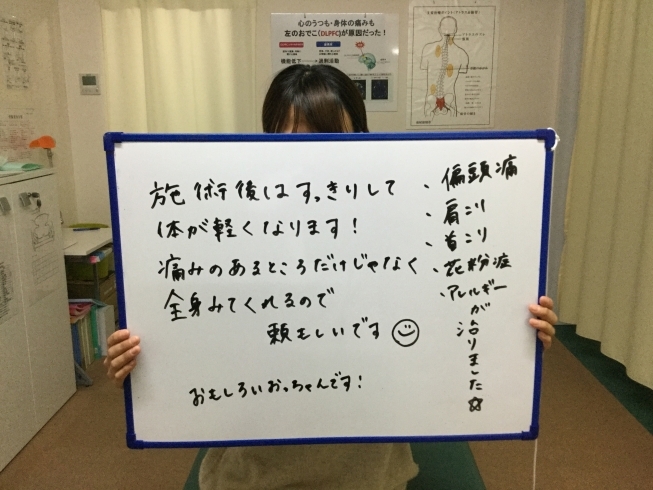 心のうつも・身体の痛みも
左のおでこ(DLPFC)が原因だった！
機能低下
過剰活動
施術後はすっきりして
体が軽くなります！
痛みのあるところだけじゃなく
全身みてくれるので
頼もしいです
おもしろいおっちゃんです！
・偏頭痛
・肩こり
・首こり
・花粉症
・アレルギー
が治りました☆